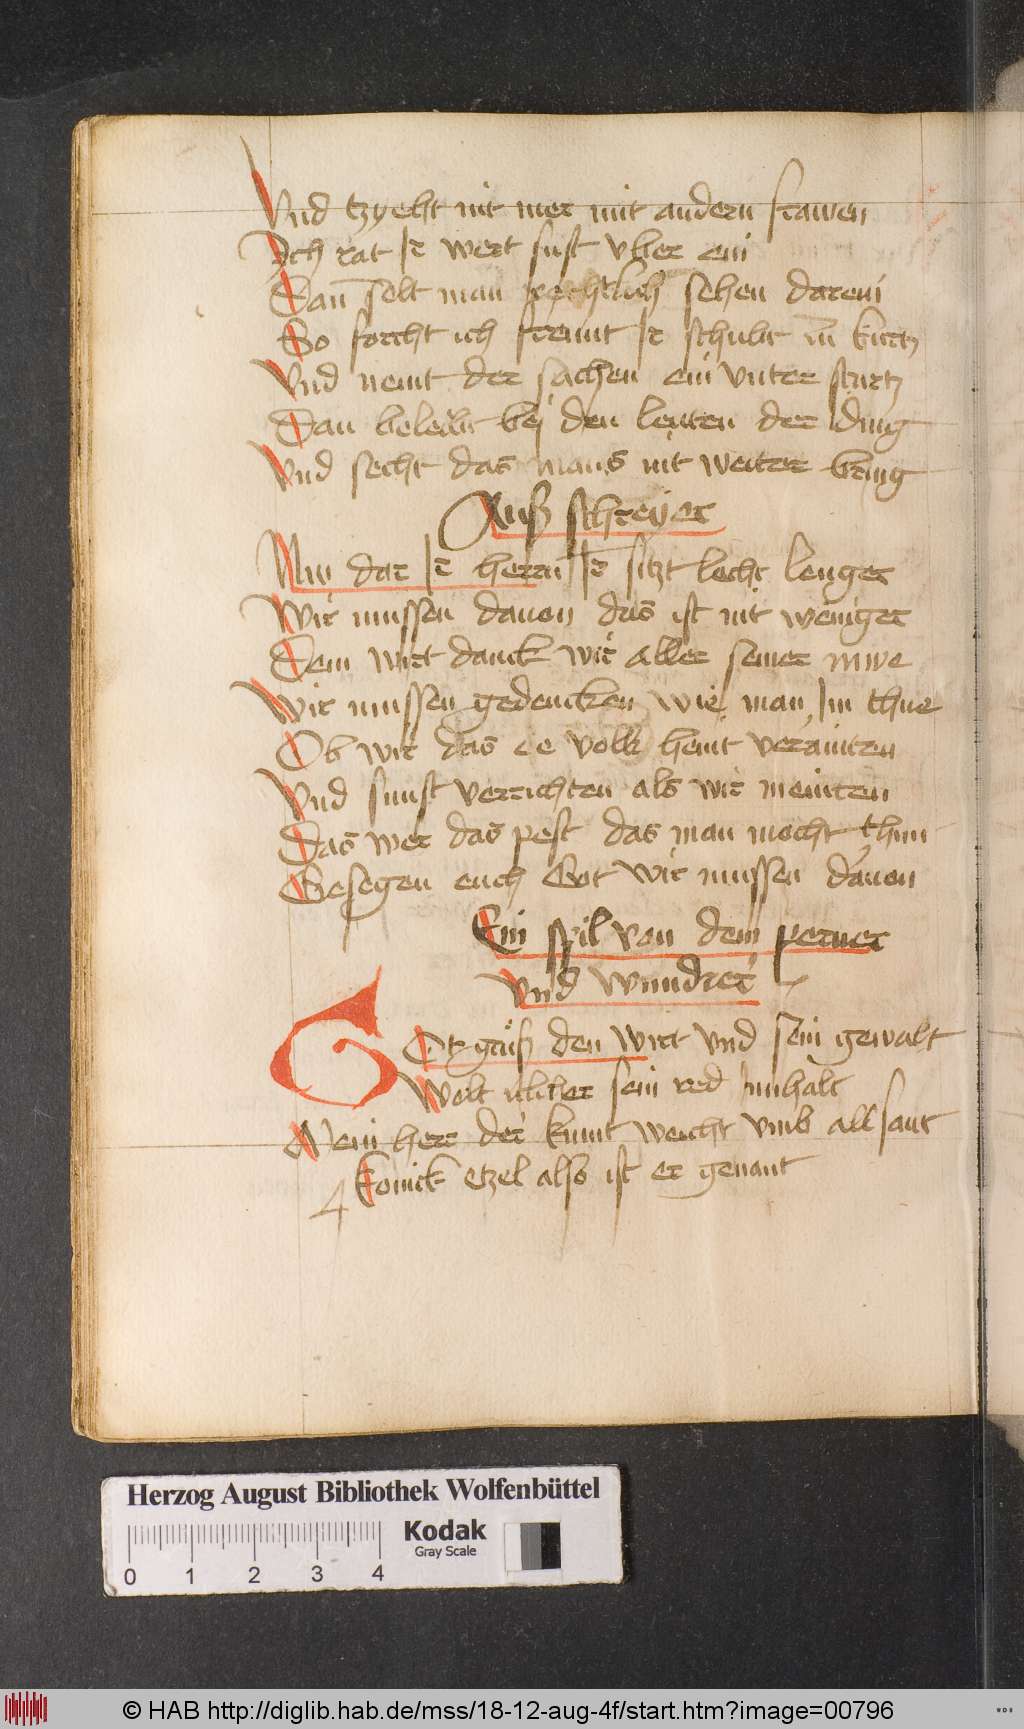 Vnd tzyeht nit mer mit andern frawen
Ich rat Ir wert sust vber ein
Dan solt man rechtlich sehen darein
So forcht ich frewnt Ir schubt in kurtz
Vnd nemt der sachen ein vnter sturtz
Dan beleibt bej den leuten der ding
Vnd secht das mans nit weiter bring
Auß schreyer
Nu dar Ir hern Ir sitzt lecht lenger
Wir mussen dauon das ist nit weniger
Dem wirt danck wir aller seiner mwe
Wir mussen gedencken wie man Im thue
Ob wir das volk heint verainten
Vnd sunst verrichten als wir meinten
Das wer das pest das man mocht thun
Gesegen euch Got wir mussen dauon
Ein spil von dem perner
vnd wundrer
GOt gruß den wirt vnd sein gewalt
Wolt sein red Innhalt
Mein herr der kumt weicht vmb all sant
konick etzel also ist er genant
Herzog August Bibliothek Wolfenbüttel
Kodak
Gray Scale
0 1 2 3 4
© HAB http://diglib.hab.de/mss/18-12-aug-4f/start.htm?image=00796